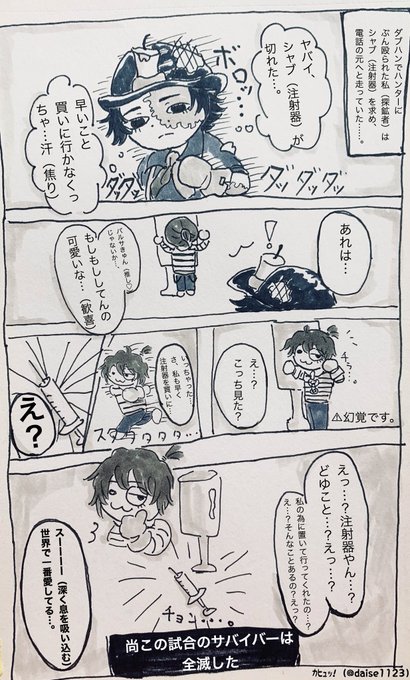 ダブハンでハンターに
ぶん殴られた私（探鉱者）は
シャブ（注射器）を求め、
電話の元へと走っていた……。
ヤバイ、
シャブ（注射器）が
切れた…。
ボロッ…
早いこと
買いに行かなくっ
ちゃ…汗（焦り）
ダッダッ
ダッダッダッ
あれは…
！
バルサきゅん（推し）
じゃないか…、
もしもししてんの
可愛いな…（歓喜）
チョ…
⚠幻覚です。
え…？
こっち見た？
いっちゃった…
さ、私も早く
注射器を買いに…
スタタタタタ…
え？
えっ…？注射器やん…？
どゆこと…？えっ…？
私の為に置いて行ってくれたの…？
え…？そんなことあるの？えっ？
チョン…。
スーーーー（深く息を吸い込む）
世界で一番愛してる…。
尚この試合のサバイバーは
全滅した
カヒュッ！(@daise1123)